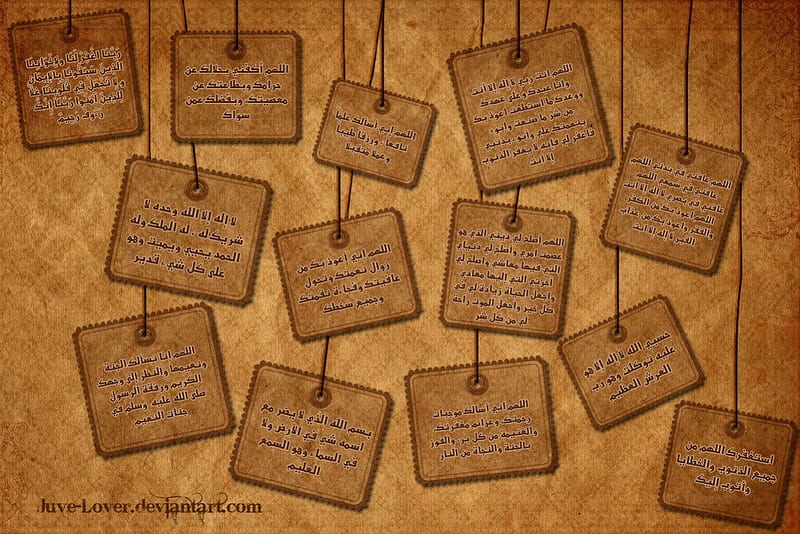 ربنا اغفر لنا ولإخواننا
الذين سبقونا بالإيمان
ولا تجعل في قلوبنا غلاً
للذين آمنوا ربنا إنك
رءوف رحيم
اللهم أكفني بحلالك عن
حرامك وبطاعتك عن
معصيتك وبفضلك عمن
سواك
اللهم إني أسالك علما
نافعا ، ورزقا طيبا
وعملا متقبلا
اللهم أنت ربي لا اله إلا أنت
وأنا عبدك وعلى عهدك
ووعدك ما استطعت أعوذ بك
من شر ما صنعت وأبوء
بنعمتك علي وأبوء بذنبي
فاغفر لي فإنه لا يغفر الذنوب
إلا أنت
اللهم عافني في بدني اللهم
عافني في سمعي اللهم
عافني في بصري لا اله إلا أنت
اللهم أعوذ بك من الكفر
والفقر وأعوذ بك من عذاب
القبر لا اله إلا أنت
لا إله إلا الله وحده لا
شريك له ، له الملك وله
الحمد يحيي ويميت وهو
على كل شيء قدير
اللهم إني أعوذ بك من
زوال نعمتك وتحول
عافيتك وفجاءة نقمتك
وجميع سخطك
اللهم أصلح لي ديني الذي هو
عصمت أمري وأصلح لي دنياي
التي فيها معاشي واصلح لي
آخرتي التي اليها معادي
واجعل الحياة زيادة لي في
كل خير واجعل الموت راحة
لي من كل شر
حسبي الله لا إله إلا هو
عليه توكلت وهو رب
العرش العظيم
اللهم إنا نسالك الجنة
ونعيمها والنظر إلى وجهك
الكريم ورفقة الرسول
صلى الله عليه وسلم في
جنات النعيم
بسم الله الذي لا يضر مع
اسمه شي في الأرض ولا
في السماء وهو السمع
العليم
اللهم إني أسالك موجبات
رحمتك وعزائم مغفرتك
والغنيمة من كل بر، والفوز
بالجنة والنجاة من النار
استغفرك اللهم من
جميع الذنوب والخطايا
وأتوب إليك
Juve-Lover.deviantart.com